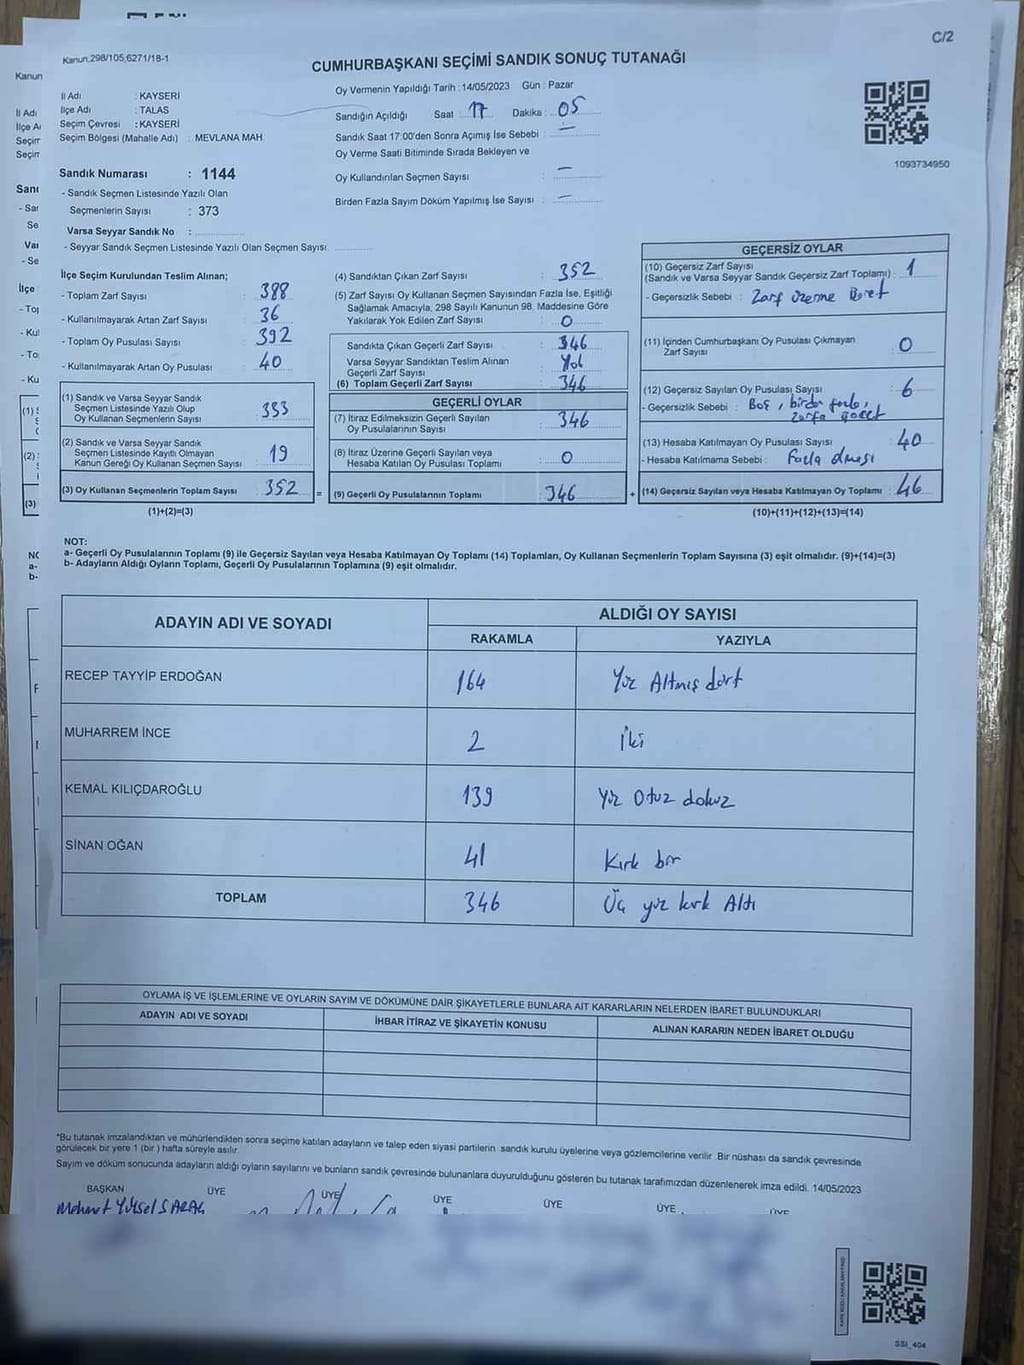 C/2
Kanun:298/105,6271/18-1
CUMHURBAŞKANI SEÇİMİ SANDIK SONUÇ TUTANAĞI
İl Adı : KAYSERİ
İlçe Adı : TALAS
Seçim Çevresi : KAYSERİ
Seçim Bölgesi (Mahalle Adı) : MEVLANA MAH
Sandık Numarası : 1144
- Sandık Seçmen Listesinde Yazılı Olan
Seçmenlerin Sayısı : 373
Varsa Seyyar Sandık No :
- Seyyar Sandık Seçmen Listesinde Yazılı Olan Seçmen Sayısı
Oy Vermenin Yapıldığı Tarih : 14/05/2023 Gün : Pazar
Sandığın Açıldığı Saat 17 Dakika : 05
Sandık Saat 17:00'den Sonra Açımış İse Sebebi : —
Oy Verme Saati Bitiminde Sırada Bekleyen ve
Oy Kullandırılan Seçmen Sayısı : —
Birden Fazla Sayım Döküm Yapılmış İse Sayısı : —
1093734950
İlçe Seçim Kurulundan Teslim Alınan;
- Toplam Zarf Sayısı : 388
- Kullanılmayarak Artan Zarf Sayısı : 36
- Toplam Oy Pusulası Sayısı : 392
- Kullanılmayarak Artan Oy Pusulası : 40
(1) Sandık ve Varsa Seyyar Sandık
Seçmen Listesinde Yazılı Olup
Oy Kullanan Seçmenlerin Sayısı : 333
(2) Sandık ve Varsa Seyyar Sandık
Seçmen Listesinde Kayıtlı Olmayan
Kanun Gereği Oy Kullanan Seçmen Sayısı : 19
(3) Oy Kullanan Seçmenlerin Toplam Sayısı : 352
(1)+(2)=(3)
(4) Sandıktan Çıkan Zarf Sayısı : 352
(5) Zarf Sayısı Oy Kullanan Seçmen Sayısından Fazla İse, Eşitliği
Sağlamak Amacıyla, 298 Sayılı Kanunun 98. Maddesine Göre
Yakılarak Yok Edilen Zarf Sayısı : 0
Sandıkta Çıkan Geçerli Zarf Sayısı : 346
Varsa Seyyar Sandıktan Teslim Alınan
Geçerli Zarf Sayısı : Yok
(6) Toplam Geçerli Zarf Sayısı : 346
GEÇERLİ OYLAR
(7) İtiraz Edilmeksizin Geçerli Sayılan
Oy Pusulalarının Sayısı : 346
(8) İtiraz Üzerine Geçerli Sayılan veya
Hesaba Katılan Oy Pusulası Toplamı : 0
(9) Geçerli Oy Pusulalarının Toplamı : 346
GEÇERSİZ OYLAR
(10) Geçersiz Zarf Sayısı
(Sandık ve Varsa Seyyar Sandık Geçersiz Zarf Toplamı) : 1
- Geçersizlik Sebebi : Zarf üzerine işaret
(11) İçinden Cumhurbaşkanı Oy Pusulası Çıkmayan
Zarf Sayısı : 0
(12) Geçersiz Sayılan Oy Pusulası Sayısı : 6
- Geçersizlik Sebebi : Boş, birden fazla,
zarfa işaret
(13) Hesaba Katılmayan Oy Pusulası Sayısı : 40
- Hesaba Katılmama Sebebi : Fazla olması
(14) Geçersiz Sayılan veya Hesaba Katılmayan Oy Toplamı : 46
(10)+(11)+(12)+(13)=(14)
NOT:
a- Geçerli Oy Pusulalarının Toplamı (9) ile Geçersiz Sayılan veya Hesaba Katılmayan Oy Toplamı (14) Toplamları, Oy Kullanan Seçmenlerin Toplam Sayısına (3) eşit olmalıdır. (9)+(14)=(3)
b- Adayların Aldığı Oyların Toplamı, Geçerli Oy Pusulalarının Toplamına (9) eşit olmalıdır.
ADAYIN ADI VE SOYADI
ALDIĞI OY SAYISI
RAKAMLA YAZIYLA
RECEP TAYYİP ERDOĞAN 164 Yüz Altmış dört
MUHARREM İNCE 2 İki
KEMAL KILIÇDAROĞLU 139 Yüz Otuz dokuz
SİNAN OĞAN 41 Kırk bir
TOPLAM 346 Üç yüz kırk Altı
OYLAMA İŞ VE İŞLEMLERİNE VE OYLARIN SAYIM VE DÖKÜMÜNE DAİR ŞİKAYETLERLE BUNLARA AİT KARARLARIN NELERDEN İBARET BULUNDUKLARI
ADAYIN ADI VE SOYADI İHBAR İTİRAZ VE ŞİKAYETİN KONUSU ALINAN KARARIN NEDEN İBARET OLDUĞU
*Bu tutanak imzalandıktan ve mühürlendikten sonra seçime katılan adayların ve talep eden siyasi partilerin sandık kurulu üyelerine veya gözlemcilerine verilir. Bir nüshası da sandık çevresinde
görülecek bir yere 1 (bir) hafta süreyle asılır.
Sayım ve döküm sonucunda adayların aldığı oyların sayılarını ve bunların sandık çevresinde bulunanlara duyurulduğunu gösteren bu tutanak tarafımızdan düzenlenerek imza edildi. 14/05/2023
BAŞKAN ÜYE ÜYE ÜYE ÜYE ÜYE ÜYE
Mehmet Yüksel SARAÇ
SSI_404